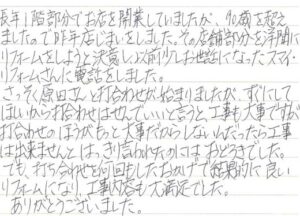 長年1階部分でお店を開業していましたが、90歳を超え
ましたので昨年店じまいをしました。その店舗部分を洋間に
リフォームをしようと決意し以前少しお世話になったスマイ・
リフォームさんに電話をしました。
さっそく原田さんと打合わせが始まりましたが、すぐにして
ほしいから打合わせはせんでいいと言うと、工事も大事ですが
打合わせのほうがもっと大事だからしないんだったら工事
は出来ませんとはっきり言われたのにはおどろきでした。
でも、打ち合わせを何回もしたおかげで結果的に良い
リフォームになり、工事内容も大満足でした。
ありがとうございました。